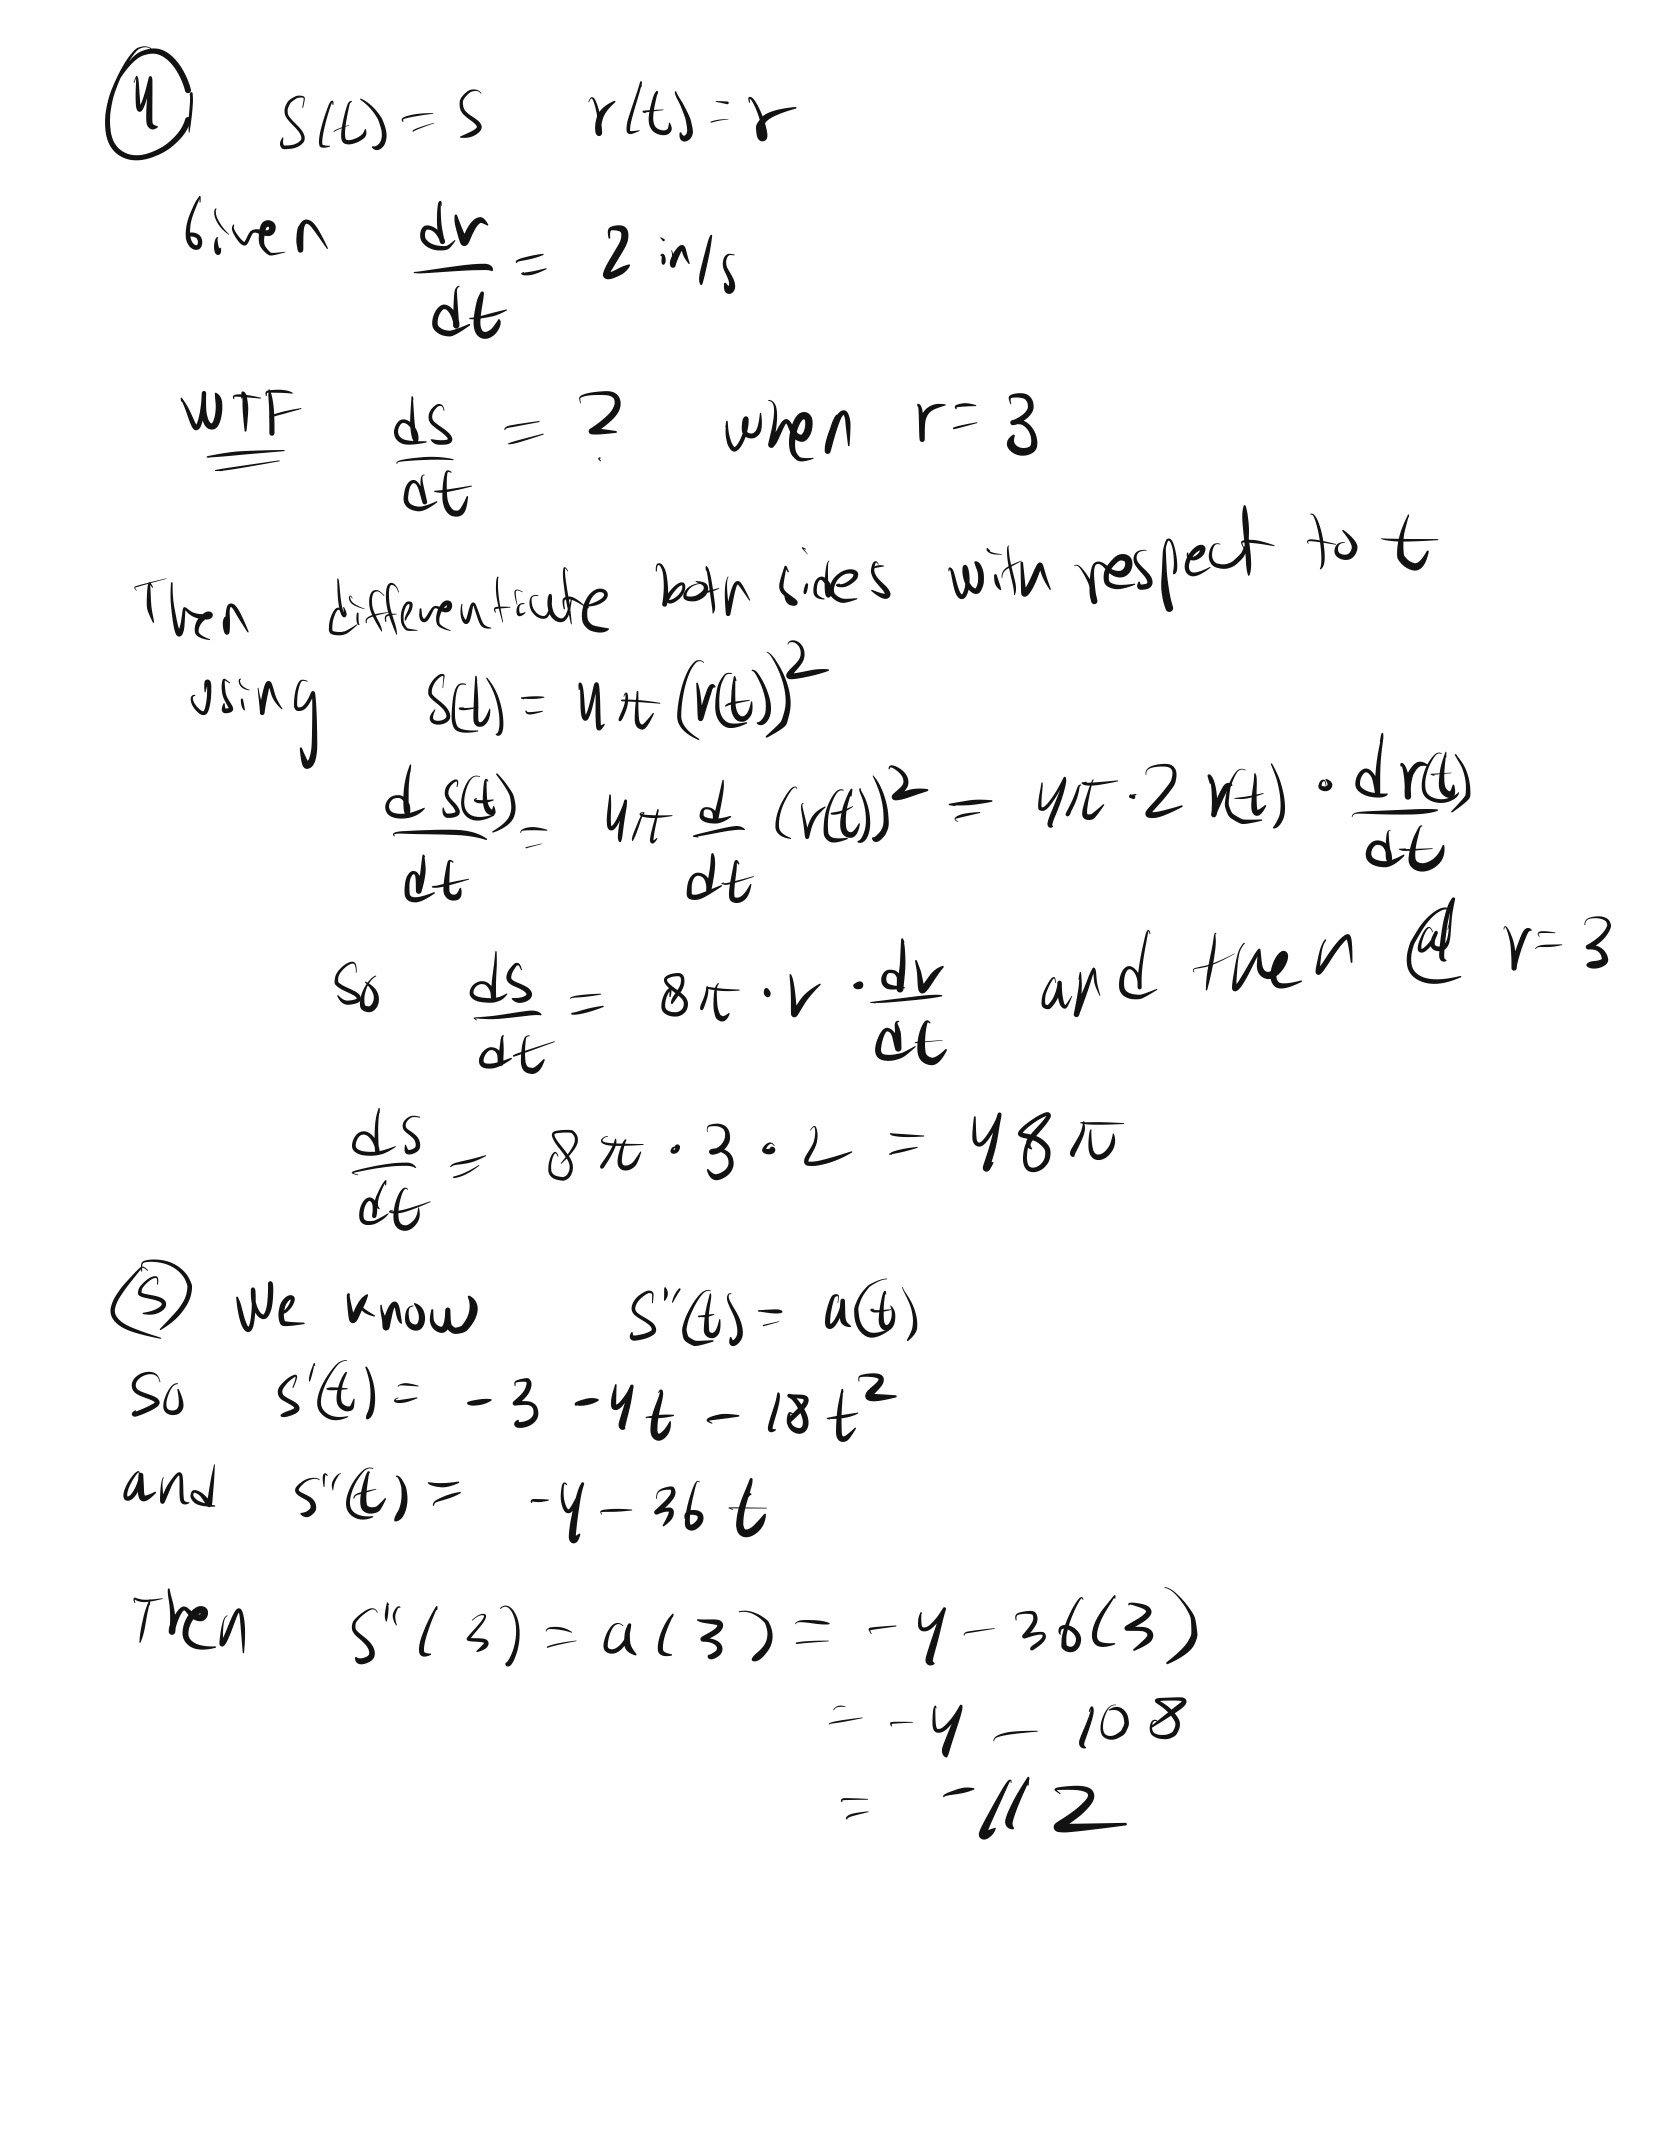 ④ S(t) = S r(t) = r
Given dr/dt = 2 in/s
WTF dS/dt = ? when r = 3
Then differentiate both sides with respect to t
using S(t) = 4π (r(t))²
d S(t)/dt = 4π d/dt (r(t))² = 4π · 2 r(t) · d r(t)/dt
So dS/dt = 8π · r · dr/dt and then @ r = 3
dS/dt = 8π · 3 · 2 = 48π
⑤ We know S''(t) = a(t)
So S'(t) = -3 - 4t - 18t²
and S''(t) = -4 - 36t
Then S''(3) = a(3) = -4 - 36(3)
= -4 - 108
= -112